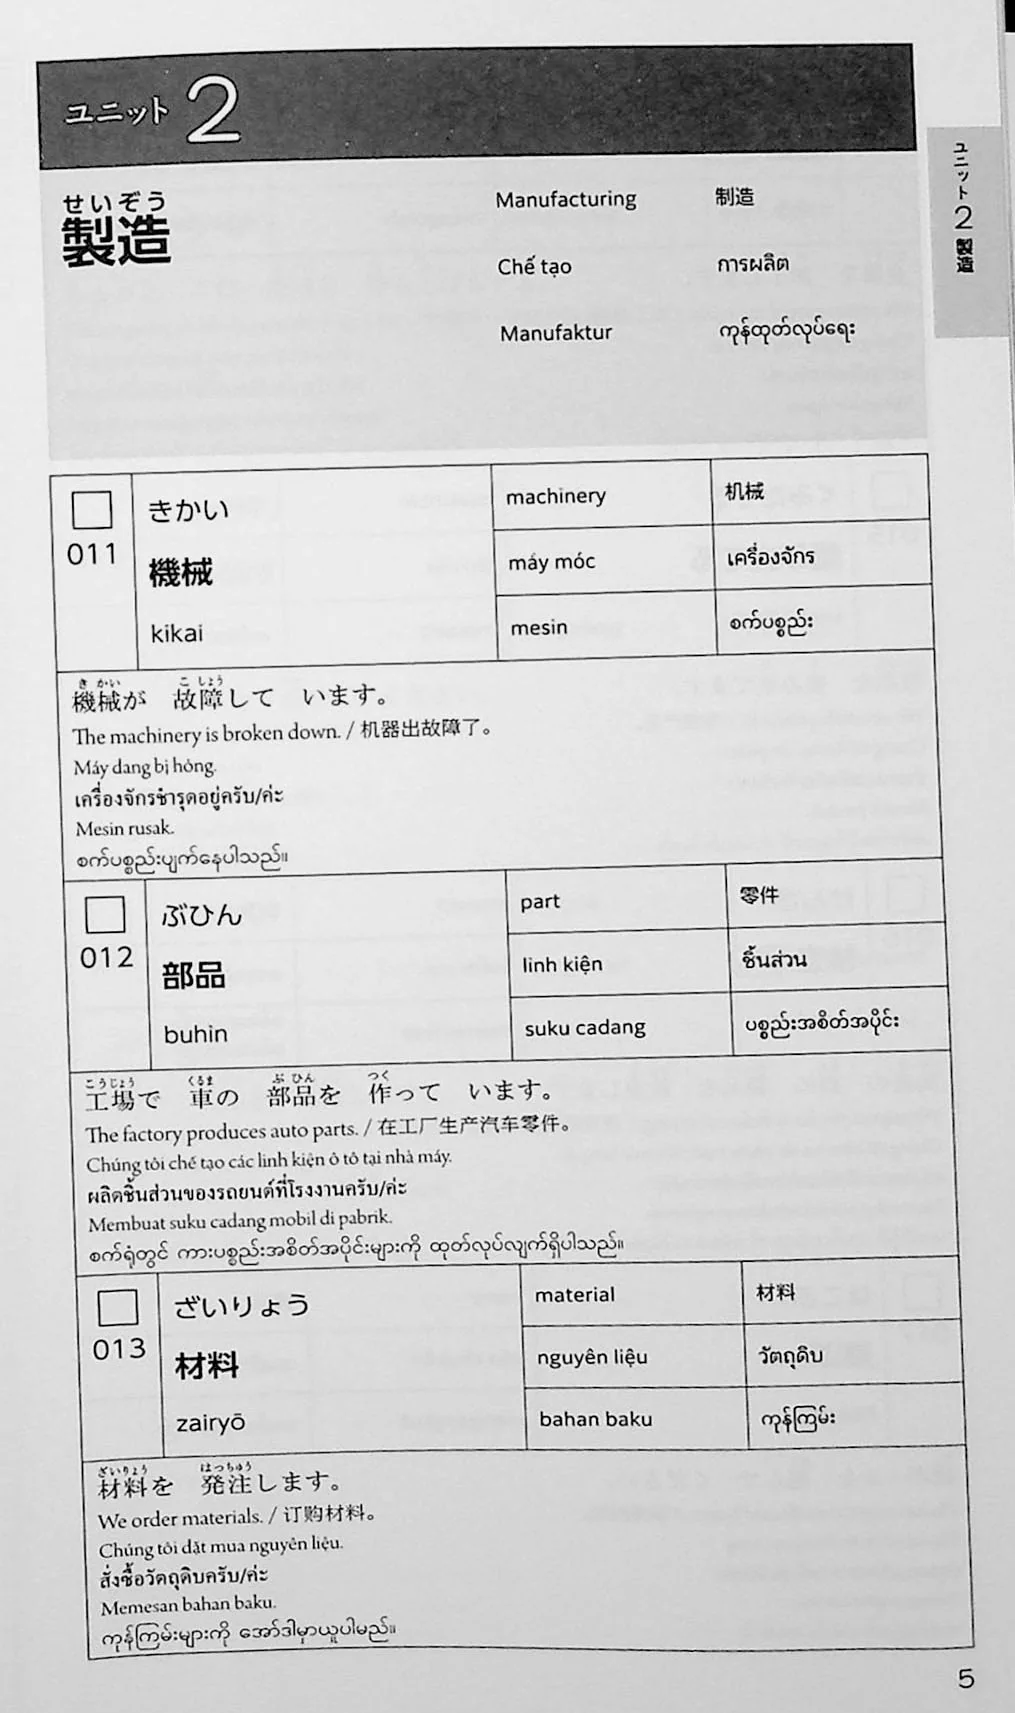 ユニット 2
せいぞう
製造
Manufacturing
制造
Chế tạo
การผลิต
Manufaktur
ကုန်ထုတ်လုပ်ရေး
ユニット 2 製造
011
きかい
機械
kikai
machinery
机械
máy móc
เครื่องจักร
mesin
စက်ပစ္စည်း
き かい こ しょう
機械が 故障して います。
The machinery is broken down. / 机器出故障了。
Máy đang bị hỏng.
เครื่องจักรชำรุดอยู่ครับ/ค่ะ
Mesin rusak.
စက်ပစ္စည်းပျက်နေပါသည်။
012
ぶひん
部品
buhin
part
零件
linh kiện
ชิ้นส่วน
suku cadang
ပစ္စည်းအစိတ်အပိုင်း
こうじょう くるま ぶ ひん つく
工場で 車の 部品を 作って います。
The factory produces auto parts. / 在工厂生产汽车零件。
Chúng tôi chế tạo các linh kiện ô tô tại nhà máy.
ผลิตชิ้นส่วนของรถยนต์ที่โรงงานครับ/ค่ะ
Membuat suku cadang mobil di pabrik.
စက်ရုံတွင် ကားပစ္စည်းအစိတ်အပိုင်းများကို ထုတ်လုပ်လျက်ရှိပါသည်။
013
ざいりょう
材料
zairyō
material
材料
nguyên liệu
วัตถุดิบ
bahan baku
ကုန်ကြမ်း
ざいりょう はっちゅう
材料を 発注します。
We order materials. / 订购材料。
Chúng tôi đặt mua nguyên liệu.
สั่งซื้อวัตถุดิบครับ/ค่ะ
Memesan bahan baku.
ကုန်ကြမ်းများကို အော်ဒါမှာယူပါမည်။
5